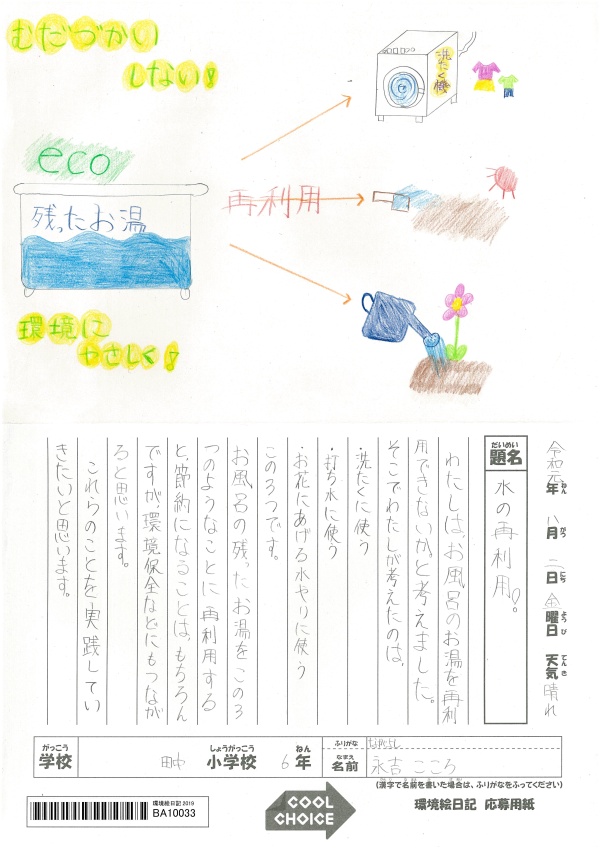 むだづかい
しない!
洗たく機
eco
残ったお湯
再利用
環境に
やさしく!
令和元年 八月 二日 金曜日 天気 晴れ
ねん がつ にち ようび てんき
だいめい
題名
水の再利用!
わたしは、お風呂のお湯を再利
用できないかと考えました。
そこでわたしが考えたのは、
・洗たくに使う
・打ち水に使う
・お花にあげる水やりに使う
この3つです。
お風呂の残ったお湯をこの3
つのようなことに再利用する
と、節約になることは、もちろん
ですが、環境保全などにもつなが
ると思います。
これらのことを実践してい
きたいと思います。
がっこう しょうがっこう ねん
学校 田中 小学校 6年
ふりがな
なまえ
名前 永吉 こころ
(漢字で名前を書いた場合は、ふりがなをふってください)
環境絵日記 2019
BA10033
COOL
CHOICE
環境絵日記 応募用紙